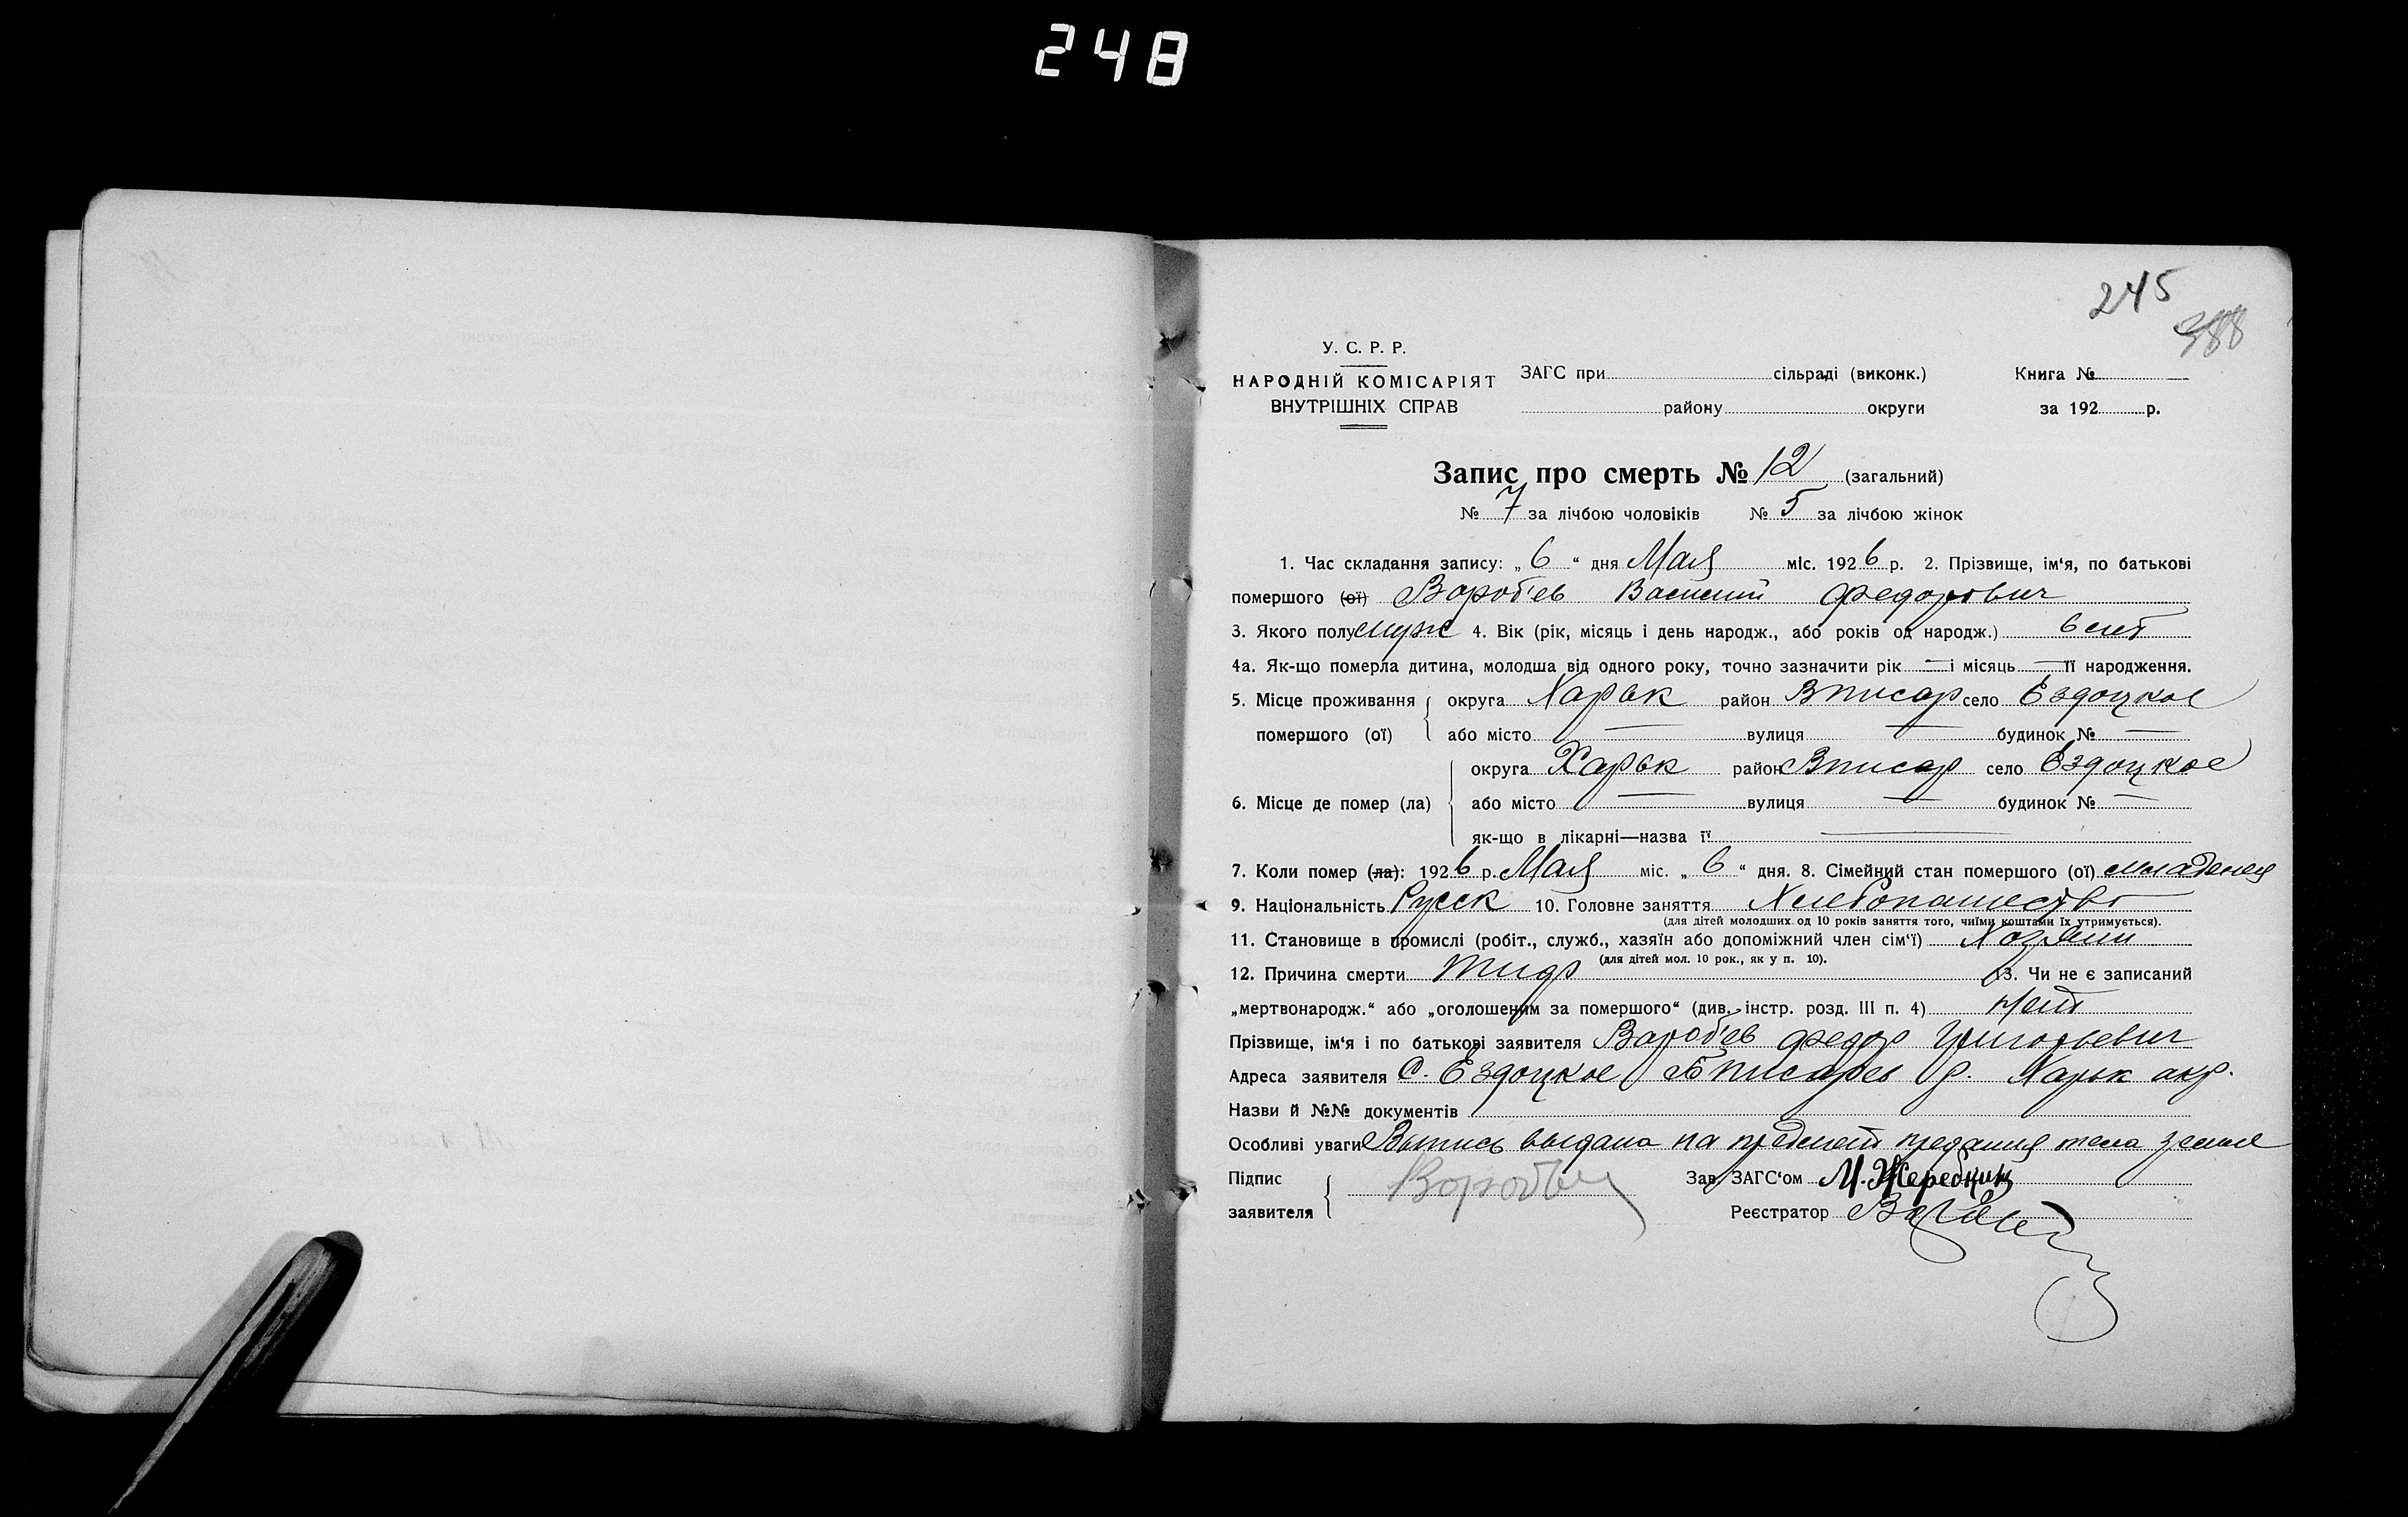 248
245
388
У. С. Р. Р.
НАРОДНІЙ КОМІСАРІЯТ
ВНУТРІШНІХ СПРАВ
ЗАГС при сільраді (виконк.) Книга №
району округи за 192 р.
Запис про смерть № 12 (загальний)
№ 7 за лічбою чоловіків № 5 за лічбою жінок
1. Час складання запису: „ 6 “ дня Мая міс. 1926 р. 2. Прізвище, ім‘я, по батькові
помершого (ої) Вороб'ев Василий Федорович
3. Якого полу муж 4. Вік (рік, місяць і день народж., або років од народж.) 6 лет
4а. Як-що померла дитина, молодша від одного року, точно зазначити рік — і місяць — її народження.
5. Місце проживання округа Харьк район Вписар село Ездоцкое
помершого (ої) або місто — вулиця — будинок № —
округа Харьк район Вписар село Ездоцкое
6. Місце де помер (ла) або місто — вулиця — будинок № —
як-що в лікарні—назва її —
7. Коли помер (ла): 1926 р. Мая міс. „ 6 “ дня. 8. Сімейний стан помершого (ої) младенец
9. Національність Русск 10. Головне заняття Хлебопашество
(для дітей молодших од 10 років заняття того, чиїми коштами їх утримується).
11. Становище в промислі (робіт., служб., хазяїн або допоміжний член сім‘ї) Хозяин
(для дітей мол. 10 рок., як у п. 10).
12. Причина смерти 13. Чи не є записаний
„мертвонародж.“ або „оголошеним за помершого“ (див. інстр. розд. III п. 4) Нет
Прізвище, ім‘я і по батькові заявителя Вороб'ев Федор Григорьевич
Адреса заявителя С. Ездоцкое Вписарев р. Харьк окр.
Назви й №№ документів
Особливі уваги Выпись выдана на предмет предания тела земле
Підпис Вороб Зав. ЗАГС‘ом М. Жеребкин
заявителя Реєстратор